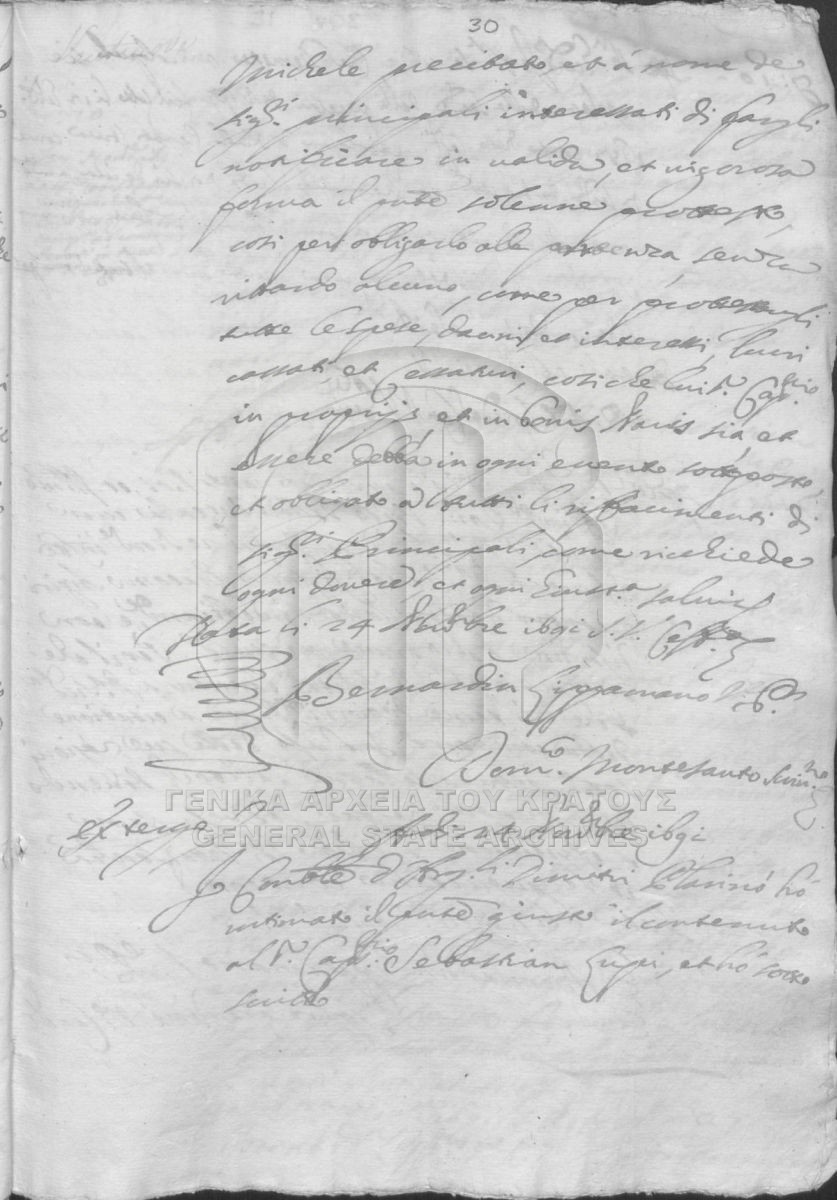 30
Michele precitato et à nome de
sig.ri principali interessati di fargli
notificare in valida, et vigorosa
forma il pnte solenne protesto,
cosi per obligarlo alla partenza, senza
ritardo alcuno, come per protestargli
tutte le spese, danni et interessi, lucri
cessati, et cessaturi, cosi che lui S.r Cap.
in proprijs, et in bonis Navis sia, et
essere debba in ogni evento sottoposto,
et obligato à tutti li rifacimenti di
sig.ri Principali, come richiede
ogni dovere et ogni giust.a salvis
li 24 Nbre 1691 S. V.
Bernardin Lippamano
Dom.co Montesanto
Ex tergo
24 1691
Io Dimitri ho
intimato il pnte giusto il contenuto
al S.r Cap. Sebastian Lupi, et hò sotto
scritto
ΓΕΝΙΚΑ ΑΡΧΕΙΑ ΤΟΥ ΚΡΑΤΟΥΣ
GENERAL STATE ARCHIVES